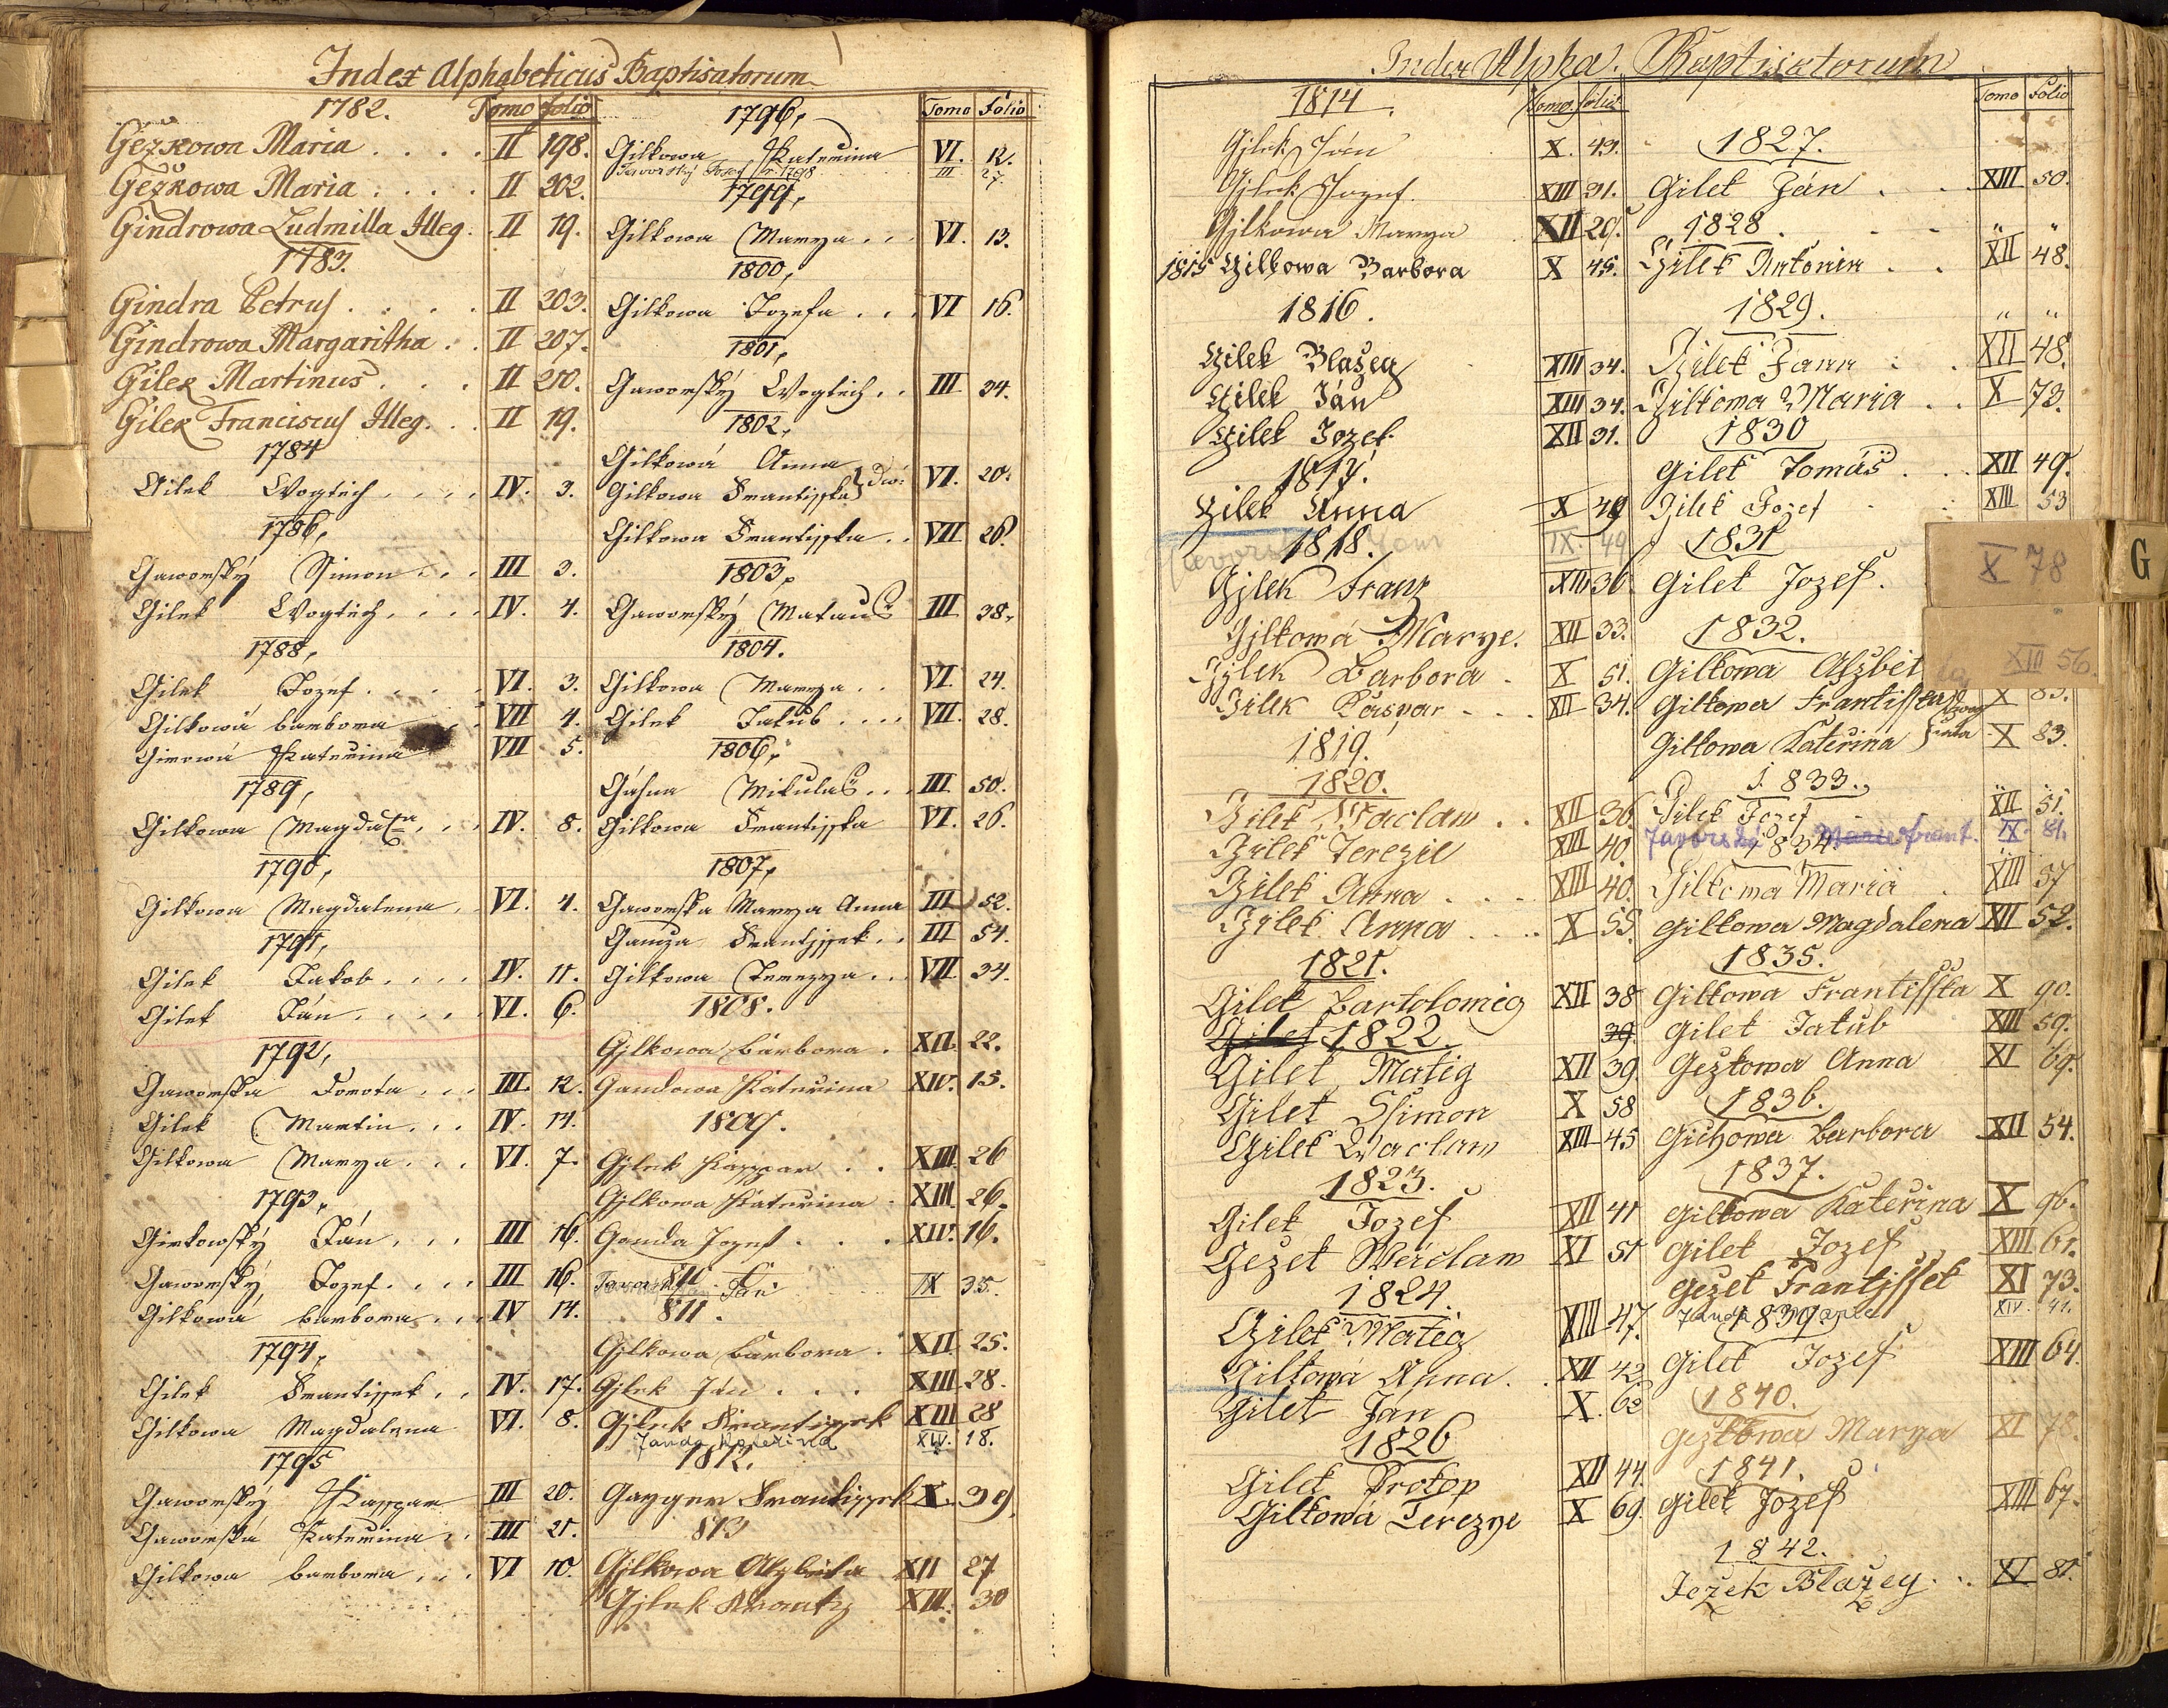 Index Alphabeticus Baptisatorum
1782. Tomo folio
Gežkowa Maria . . . . II 198.
Gežkowa Maria . . . . II 202.
Gindrowa Ludmilla Illeg. II 19.
1783.
Gindra Petrus . . . . II 203.
Gindrowa Margaritha . . II 207.
Gilek Martinus . . . II 210.
Gilek Franciscus Illeg. . II 19.
1784
Gilek Wogtěch . . . . IV. 3.
1786,
Gaworský Simon . . . III 3.
Gilek Wogtěch . . . . IV. 4.
1788,
Gilek Jozef . . . . VI. 3.
Gilkowá barbora VII 4.
Kateřina VII 5.
1789,
Gilkowa Magdalena . . IV. 8.
1790,
Gilkowa Magdalena . VI. 4.
1791,
Gilek Jakob . . . . IV. 11.
Gilek Ján . . . . . VI. 6.
1792,
Gaworska Dorota . . . III. 12.
Gilek Martin . . . IV. 14.
Gilkowa Marya . . . VI. 7.
1793,
Ján . . . III 16.
Gaworský Jozef . . . . III 16.
Gilkowá barbora . . . IV 14.
1794,
Gilek Frantissek . . IV. 17.
Gilkowa Magdalena VI. 8.
1795
Gaworský Kasspar III 20.
Gaworská Katerina . . III 21.
Gilkowá barbora . . . VI 10.
1796, Tomo Folio
Gilkowa Katerina VI. 12.
Javorský Josef r. 1798 III 27.
1799,
Gilkowa Marya . . . VI. 13.
1800,
Gilkowa Jozefa . . . VI 16.
1801,
Gaworský Wogtěch . . III 34.
1802,
Gilkowá Anna
Gilkowa Frantisska } Dwi VI. 20.
Gilkowa Frantisska . . VII 26.
1803,
Gaworský Matauš III 38.
1804.
Gilkowa Marya . . VI. 24.
Gilek Jakub . . . . VII. 28.
1806,
Mikulaš . . III. 50.
Gilkowa Frantisska VI. 26.
1807,
Gaworska Marya Anna III 52.
Frantissek . . III 54.
Gilkowa Terezya . . VII. 34.
1808.
Gjlkowa Barbora . XII. 22.
Gandowa Katerina XIV. 15.
1809.
Gjlek Kasspar . . XIII. 26
Gjlkowa Katerina . XIII. 26.
Ganda Jozef . . . XIV. 16.
810
Jan IX 35.
811.
Gjlkowa Barbora . XII. 25.
Gjlek Ján . . . XIII. 28.
Gjlek Frantissek XIII 28
Janda Kateřina XIV. 18.
1812.
Gayger Frantissek X. 39.
813
Gjlkowa Alzběta XII 27
Gjlek Frantz XIII. 30
Index Alpha. Baptisatorum
1814. Tomo. folio
Gjlek Ján X. 43.
Gjlek Jozef XIII 31.
Gjlkowa Marya XII 29.
1815 Gilkowa Barbora X 45.
1816.
Gilek Blažeg XIII 34.
Gilek Ján XIII 34.
Gilek Jozef XII 31.
1817.
Gilek Anna X 49
1818. IX. 49
Gjlek Franz XIII 36
Gjlkowá Marye. XII 33.
Gjlek Barbora . X 51.
Gilek Kaspar . . . XII 34.
1819.
1820.
Gilek Waclaw . . XII 36.
Gilek Terezie XIII 40.
Gilek Anna . . . XIII 40.
Gilek Anna . . . X 55.
1821.
Gilek Bartolomeg XII 38
Gilek 1822. 39
Gilek Matig XII 39
Gilek Ssimon X 58
Gilek Waclaw XIII 45
1823.
Gilek Jozef XII 41
Gežek Wáclaw XI 51
1824.
Gilek Matěg XIII 47.
Gilkowá Anna . . XII 42.
Gilek Jan X. 63
1826
Gilek Prokop XII 44.
Gilkowá Terezye X 69.
Tomo Folio
1827.
Gilek Ján . . XIII 50.
1828 . . . " "
Gilek Antonin . . XII 48.
1829. " "
Gilek Jann . . XII 48.
Gilkowa Maria . . X 73.
1830
Gilek Tomáš . . XII 49.
Gilek Jozef XIII 53
1831
Gilek Jozef. X 78
1832.
Gilkowa Alzběta XIII 56.
Gilkowa Frantisska X 83.
Gilkowa Kateřina X 83.
1833.
Gilek Jozef XII 51.
Javorská 1834. Marie frant. IX. 81.
Gilkowa Maria . XIII 57
Gilkowa Magdalena XII 52.
1835.
Gilkowa Frantisska X 90.
Gilek Jakub XIII 59.
Gezkowa Anna XI 69.
1836.
Gichowa Barbora XII 54.
1837.
Gilkowa Kateřina X 96.
Gilek Jozef XIII 61.
Gežek Frantissek XI 73.
Janda 1839 XIV. 42.
Gilek Jozef XIII 64.
1840.
Gežkowa Marya XI 78.
1841.
Gilek Jozef XIII 67.
1842.
Ježek Blažey . . XI 81.
G